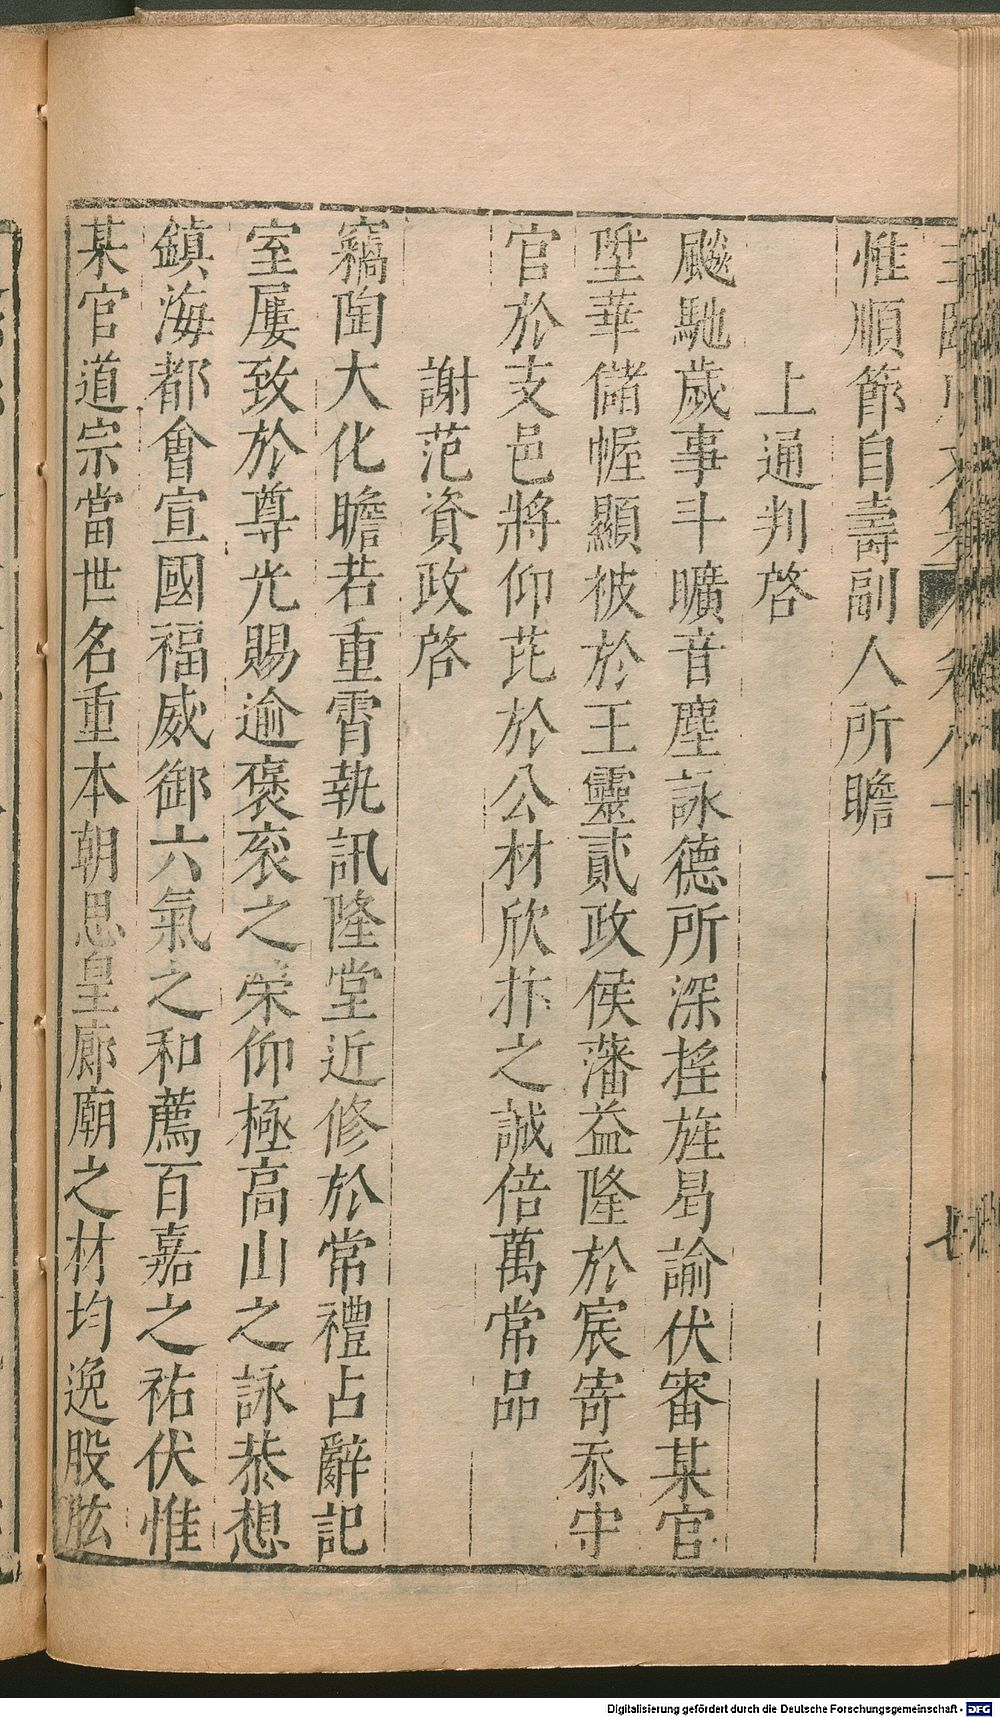 惟順節自壽副人所瞻
上通判啓
飈馳歲事斗曠音塵詠德所深搖旌曷諭伏審某官
陞華儲幄顯被於王靈貳政侯藩益隆於宸寄忝守
官於支邑將仰芘於公材欣抃之誠倍萬常品
謝范資政啓
竊陶大化瞻若重霄執訊隆堂近修於常禮占辭記
室屢致於尊光賜逾褒衮之榮仰極高山之詠恭想
鎮海都會宣國福威御六氣之和薦百嘉之祐伏惟
某官道宗當世名重本朝思皇廊廟之材均逸股肱
七
Digitalisierung gefördert durch die Deutsche Forschungsgemeinschaft - DFG